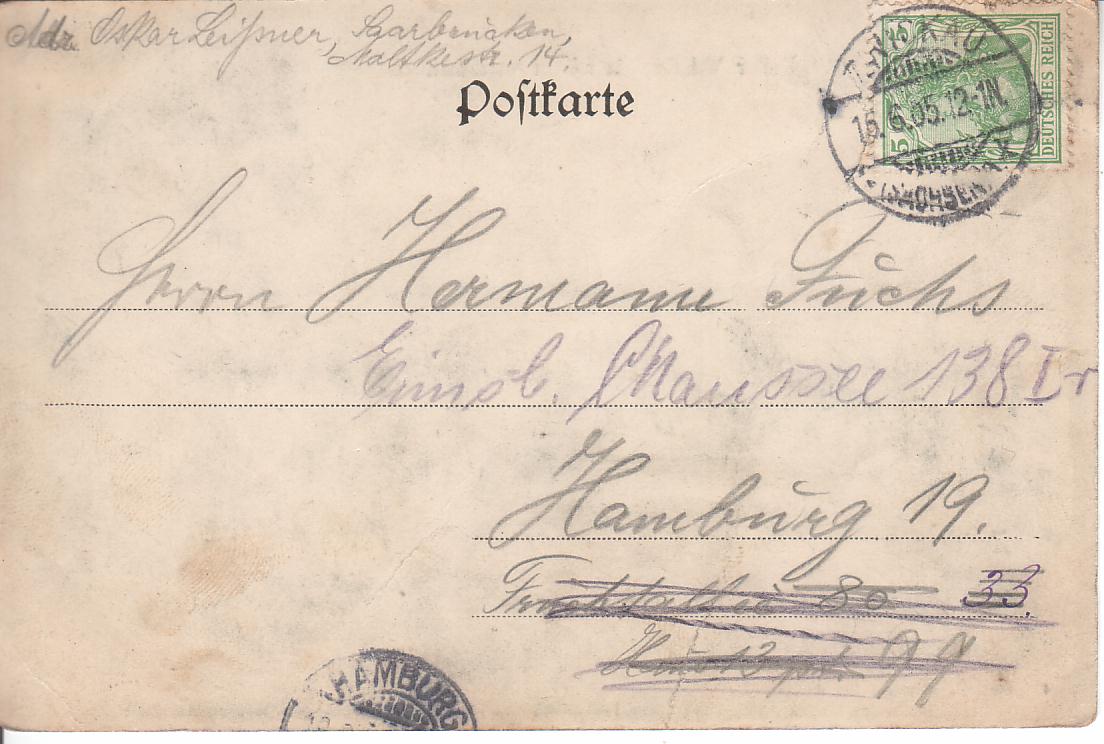 Adr. Oskar Leißner, Saarbrücken,
Moltkestr. 14.
Postkarte
5 5
DEUTSCHES REICH
ZWICKAU
15.6.05.12-1N.
(SACHSEN)
Herrn Hermann Fuchs
Eimsb. Chaussee 138 I r
Hamburg 19.
80 33.
99
HAMBURG